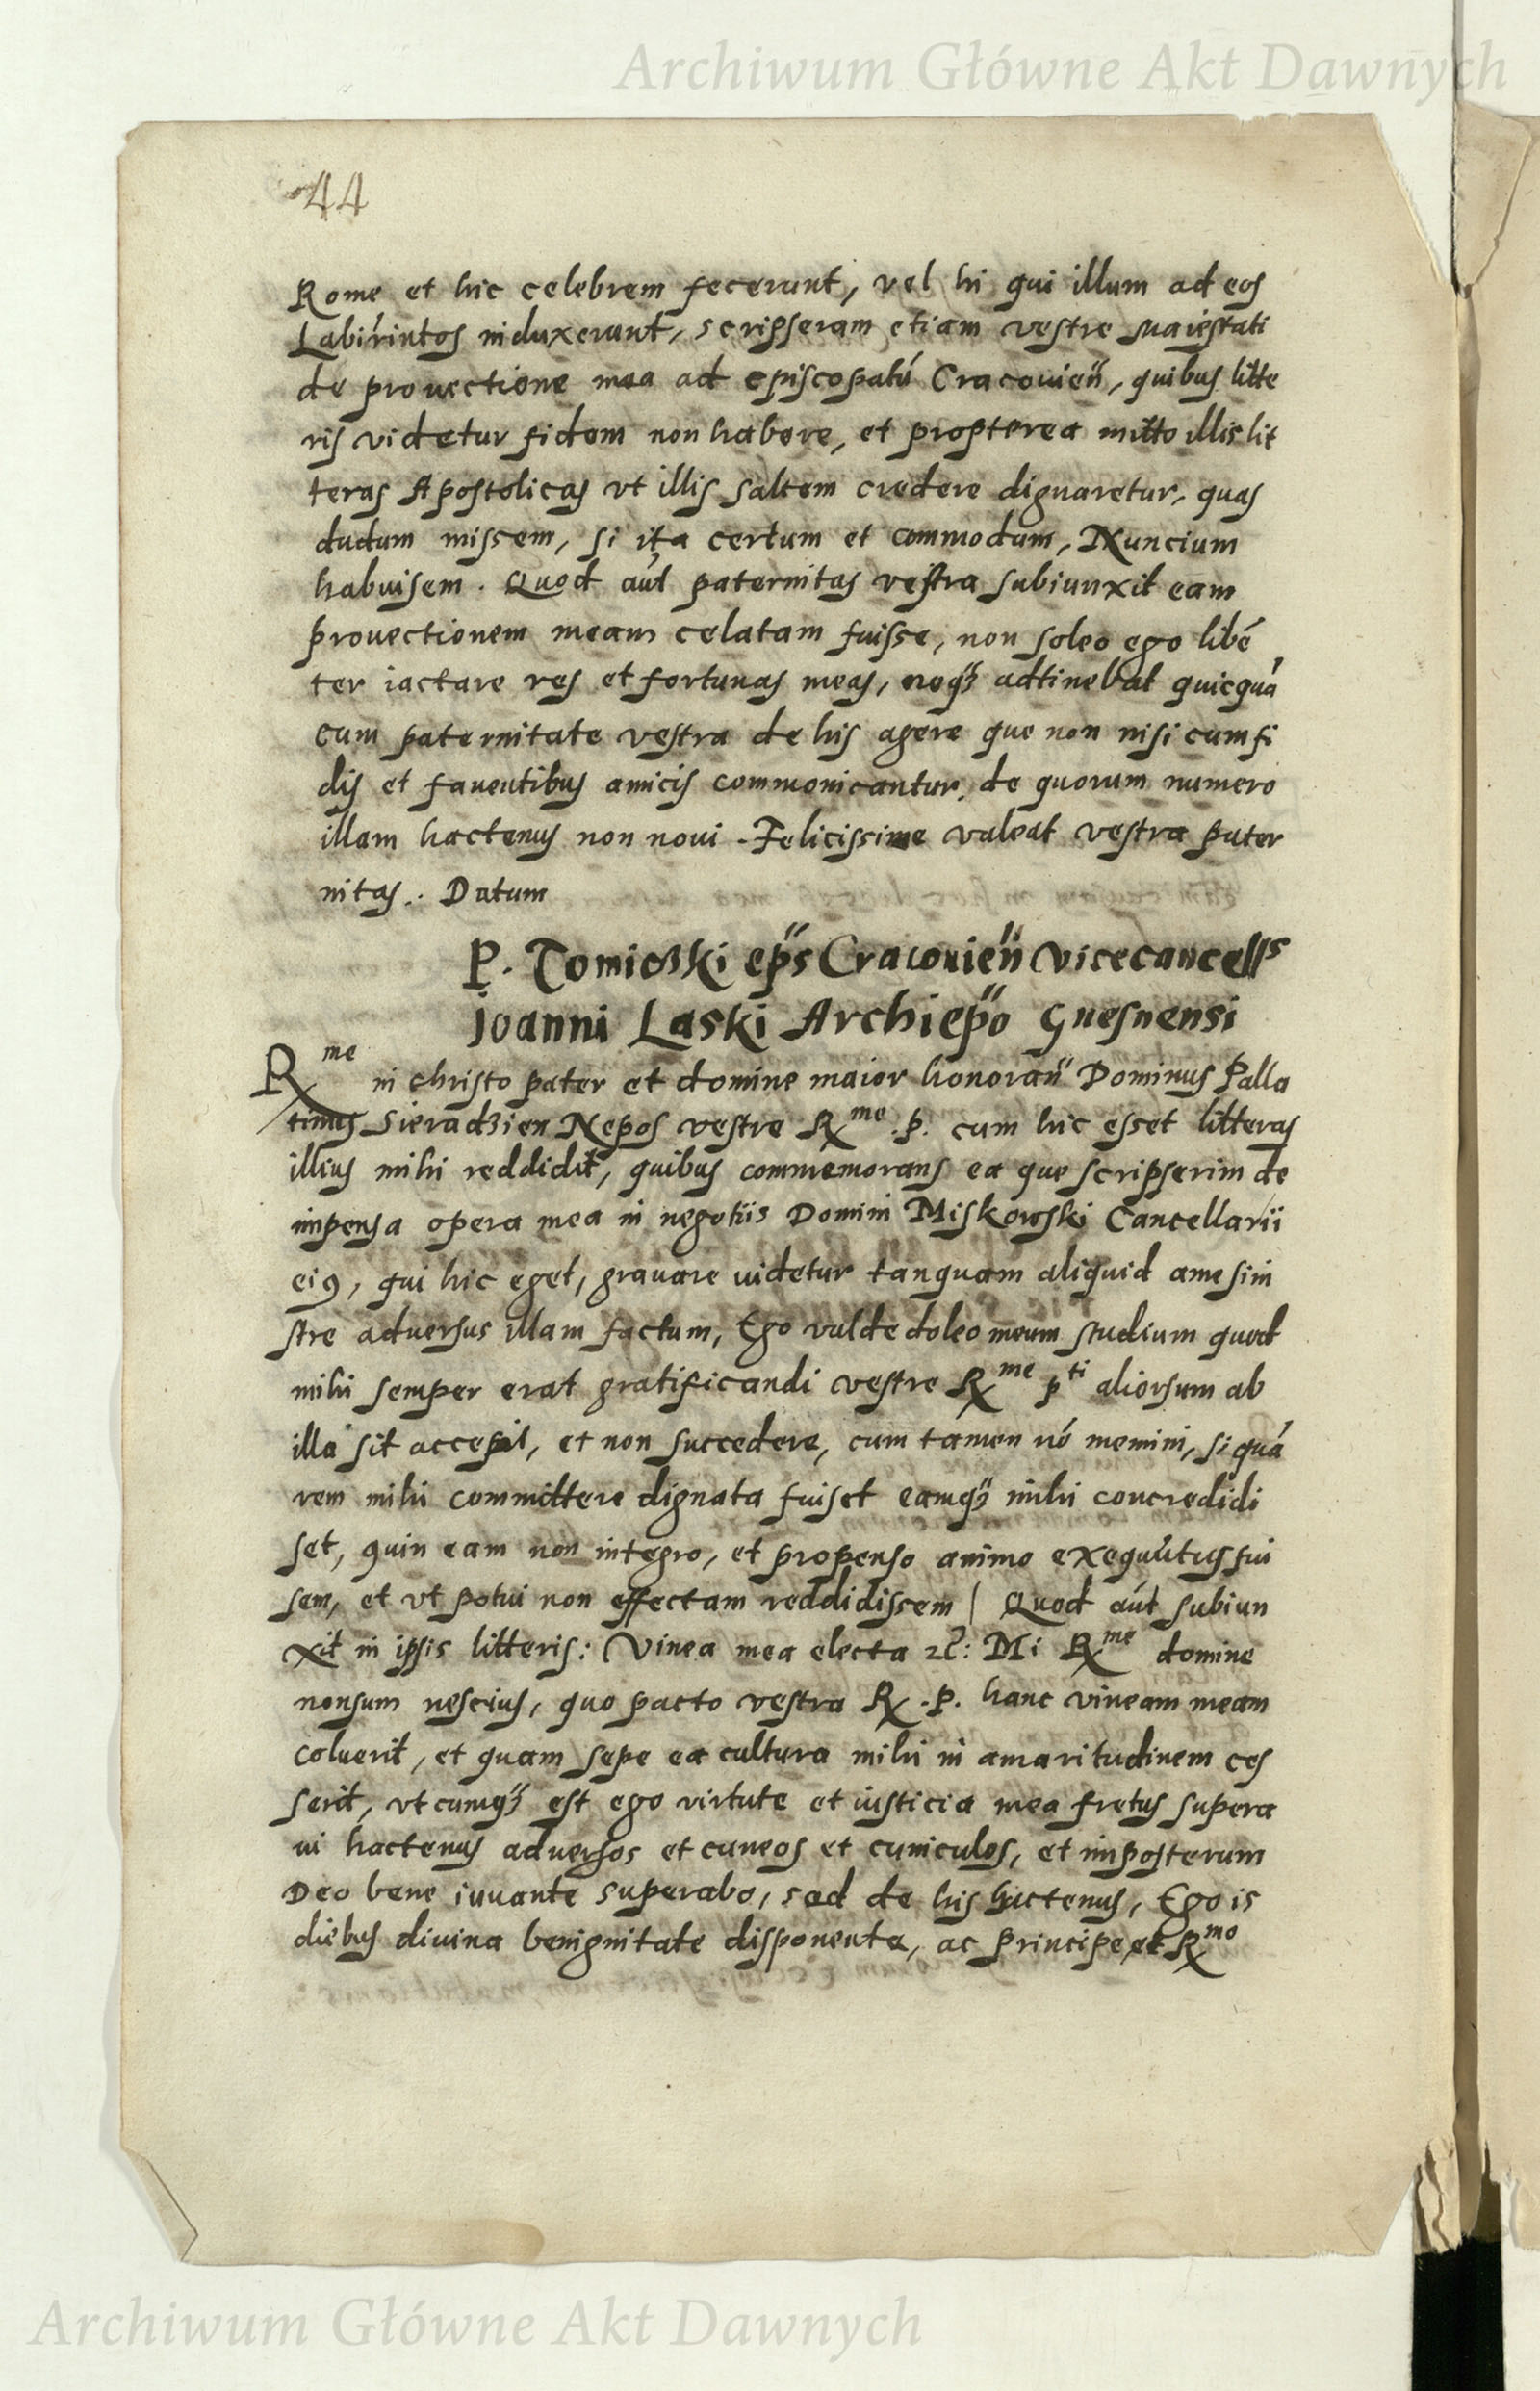 Archiwum Główne Akt Dawnych
44
Rome et hic celebrem fecerunt, vel hi qui illum ad eos
Labirintos induxerunt, scripseram etiam vestre maiestati
de provectione mea ad episcopatū Cracovień, quibus litte
ris videtur fidem non habere, et propterea mitto illis lit
teras Apostolicas vt illis saltem credere dignaretur, quas
dudum missem, si ita certum et commodum, Nuncium
habuisem. Quod aūt paternitas vestra subiunxit eam
provectionem meam celatam fuisse, non soleo ego libē
ter iactare res et fortunas meas, neqꝫ adtinebat quicquā
cum paternitate vestra de his agere que non nisi cum fi
dis et faventibus amicis commonicantur, de quorum numero
illam hactenus non novi. Felicissime valeat vestra pater
nitas. Datum
P. Tomiczki ep̄s Cracovień vicecancells
Joanni Laski Archiep̄o Gnesnensi
Rme in christo pater et domine maior honorań Dominus Palla
tinus Sieradzien Nepos vestre Rme .p. cum hic esset litteras
illius mihi reddidit, quibus commemorans ea que scripserim de
impensa opera mea in negotiis Domini Miskowski Cancellarii
eiꝯ, qui hic eget, gravare videtur tanquam aliquid ame sini
stre adversus illam factum, Ego valde doleo meum studium quod
mihi semper erat gratificandi vestre Rme pti aliorsum ab
illa sit accepit, et non succedere, cum tamen nō memini, si quā
rem mihi committere dignata fuiset eamqꝫ mihi concredidi
set, quin eam non integro, et propenso animo exequutus fui
sem, et vt potui non effectam reddidissem | Quod aūt subiun
xit in ipsis litteris: Vinea mea electa ⁊c̄: Mi Rme domine
nonsum nescius, quo pacto vestra R .P. hanc vineam meam
coluerit, et quam sepe ea cultura mihi in amaritudinem ces
serit, vt cumqꝫ est ego virtute et iusticia mea fretus supera
vi hactenus adversos et cuneos et cuniculos, et imposterum
Deo bene iuvante superabo, sed de his hactenus, Ego is
diebus divina benignitate disponente, ac principe et Rmo
Archiwum Główne Akt Dawnych